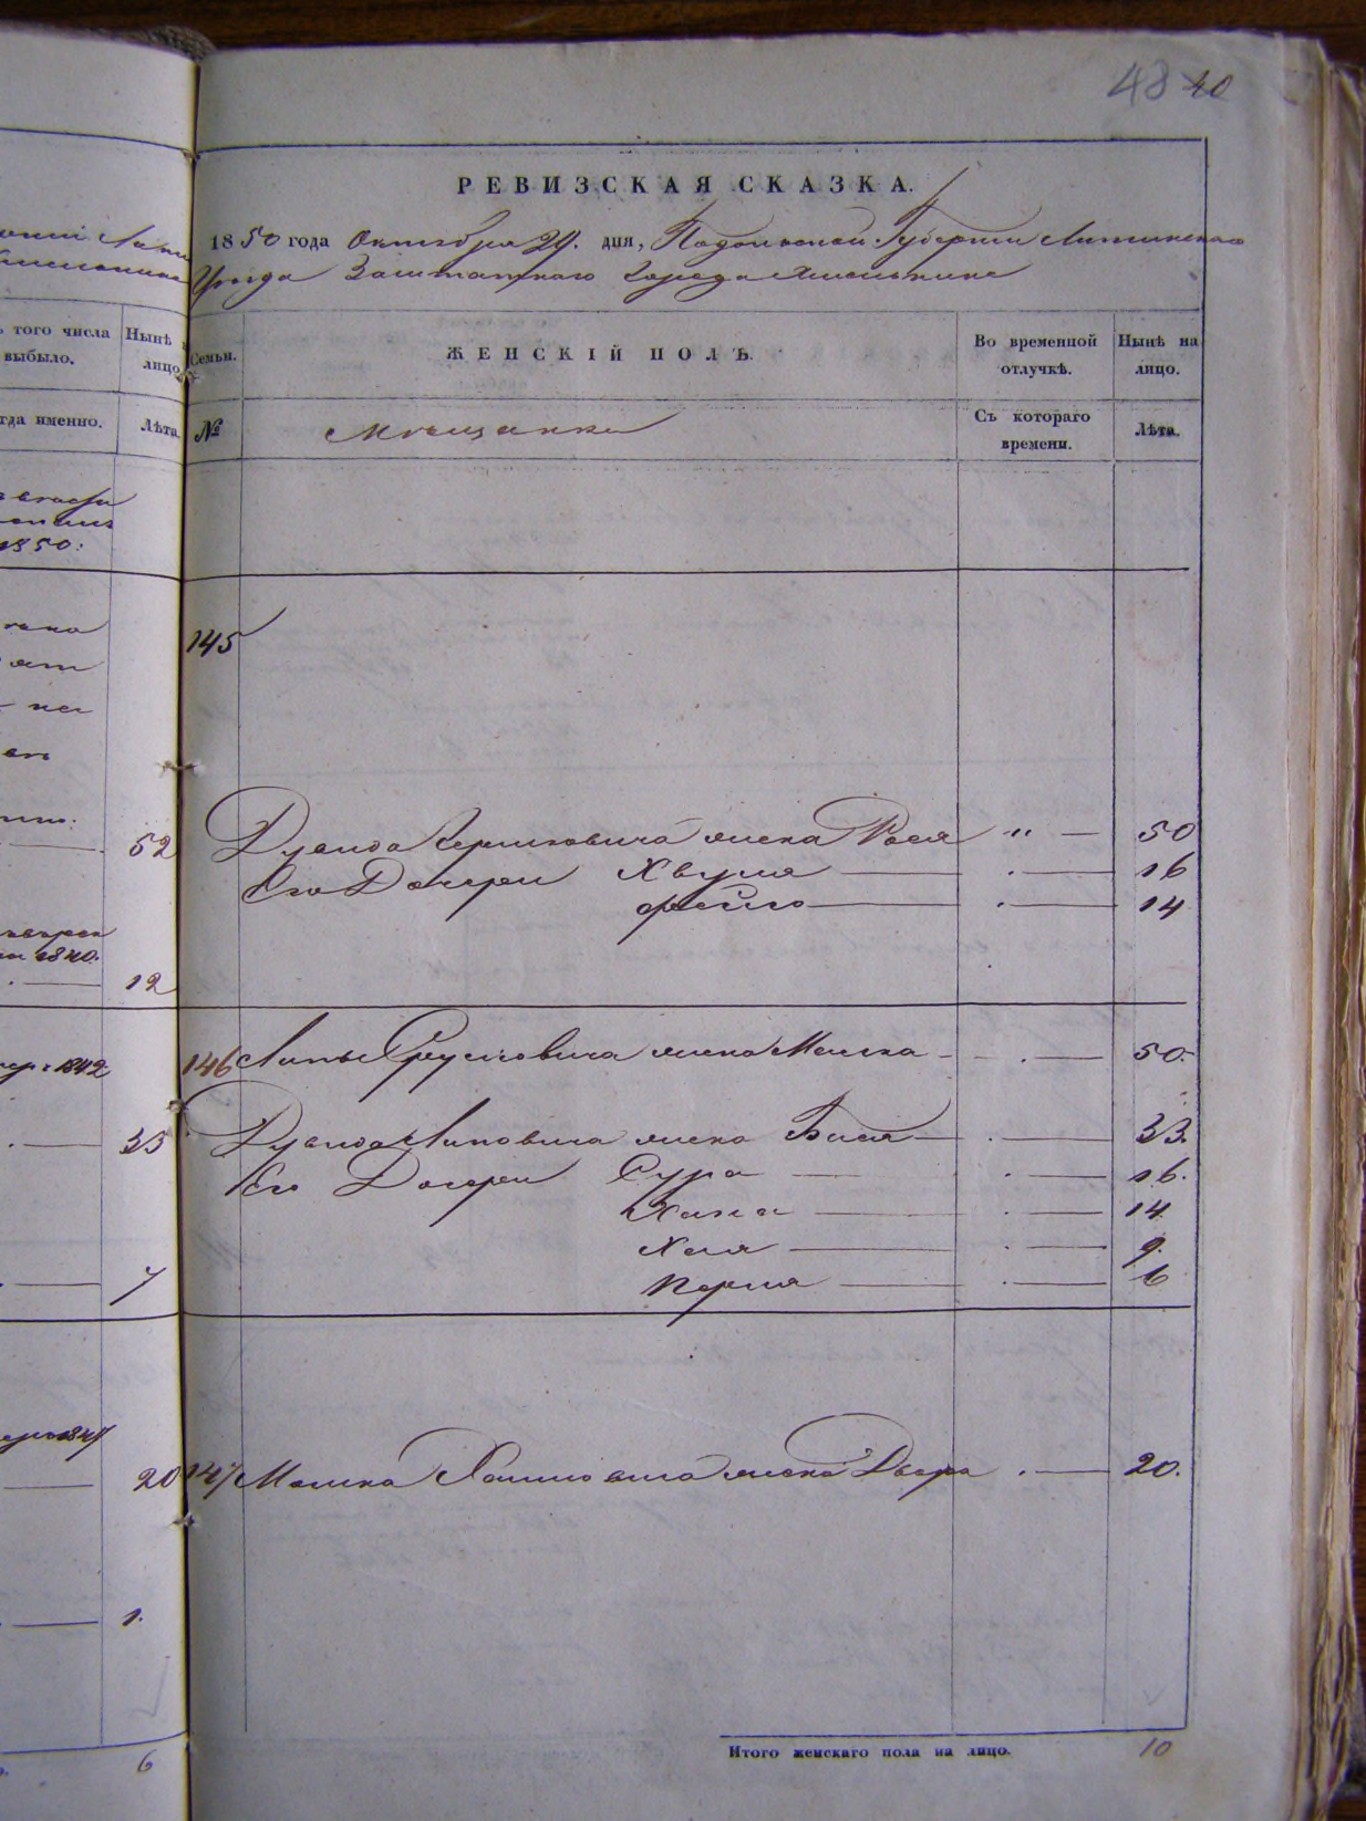 48 40
РЕВИЗСКАЯ СКАЗКА.
1850 года Октября 29. дня, Подольской Губернии Литинскаго
Уѣзда Заштатнаго города Хмельника
ъ того числа
выбыло.
Нынѣ
лицо
Семьи.
ЖЕНСКІЙ ПОЛЪ.
Во временной
отлучкѣ.
Нынѣ на
лицо.
гда именно.
Лѣта.
№
Мѣщанки
Съ котораго
времени.
Лѣта.
1850.
145
52
Дувида Берковича жена Рося " — 50
Его Дочери Хвуля — 16
Фейга — 14
1840.
12
1842
146 Липы Сруловича жена Малка — 50.
35
Дувида Липовича жена Бася — 33.
Его Дочери Сура — 16.
Хана — 14
Хая — 9.
Перля — 6
7
1847
20
147 Мошка Хаимовича жена Двора — 20.
1.
Итого женскаго пола на лицо. 10
6